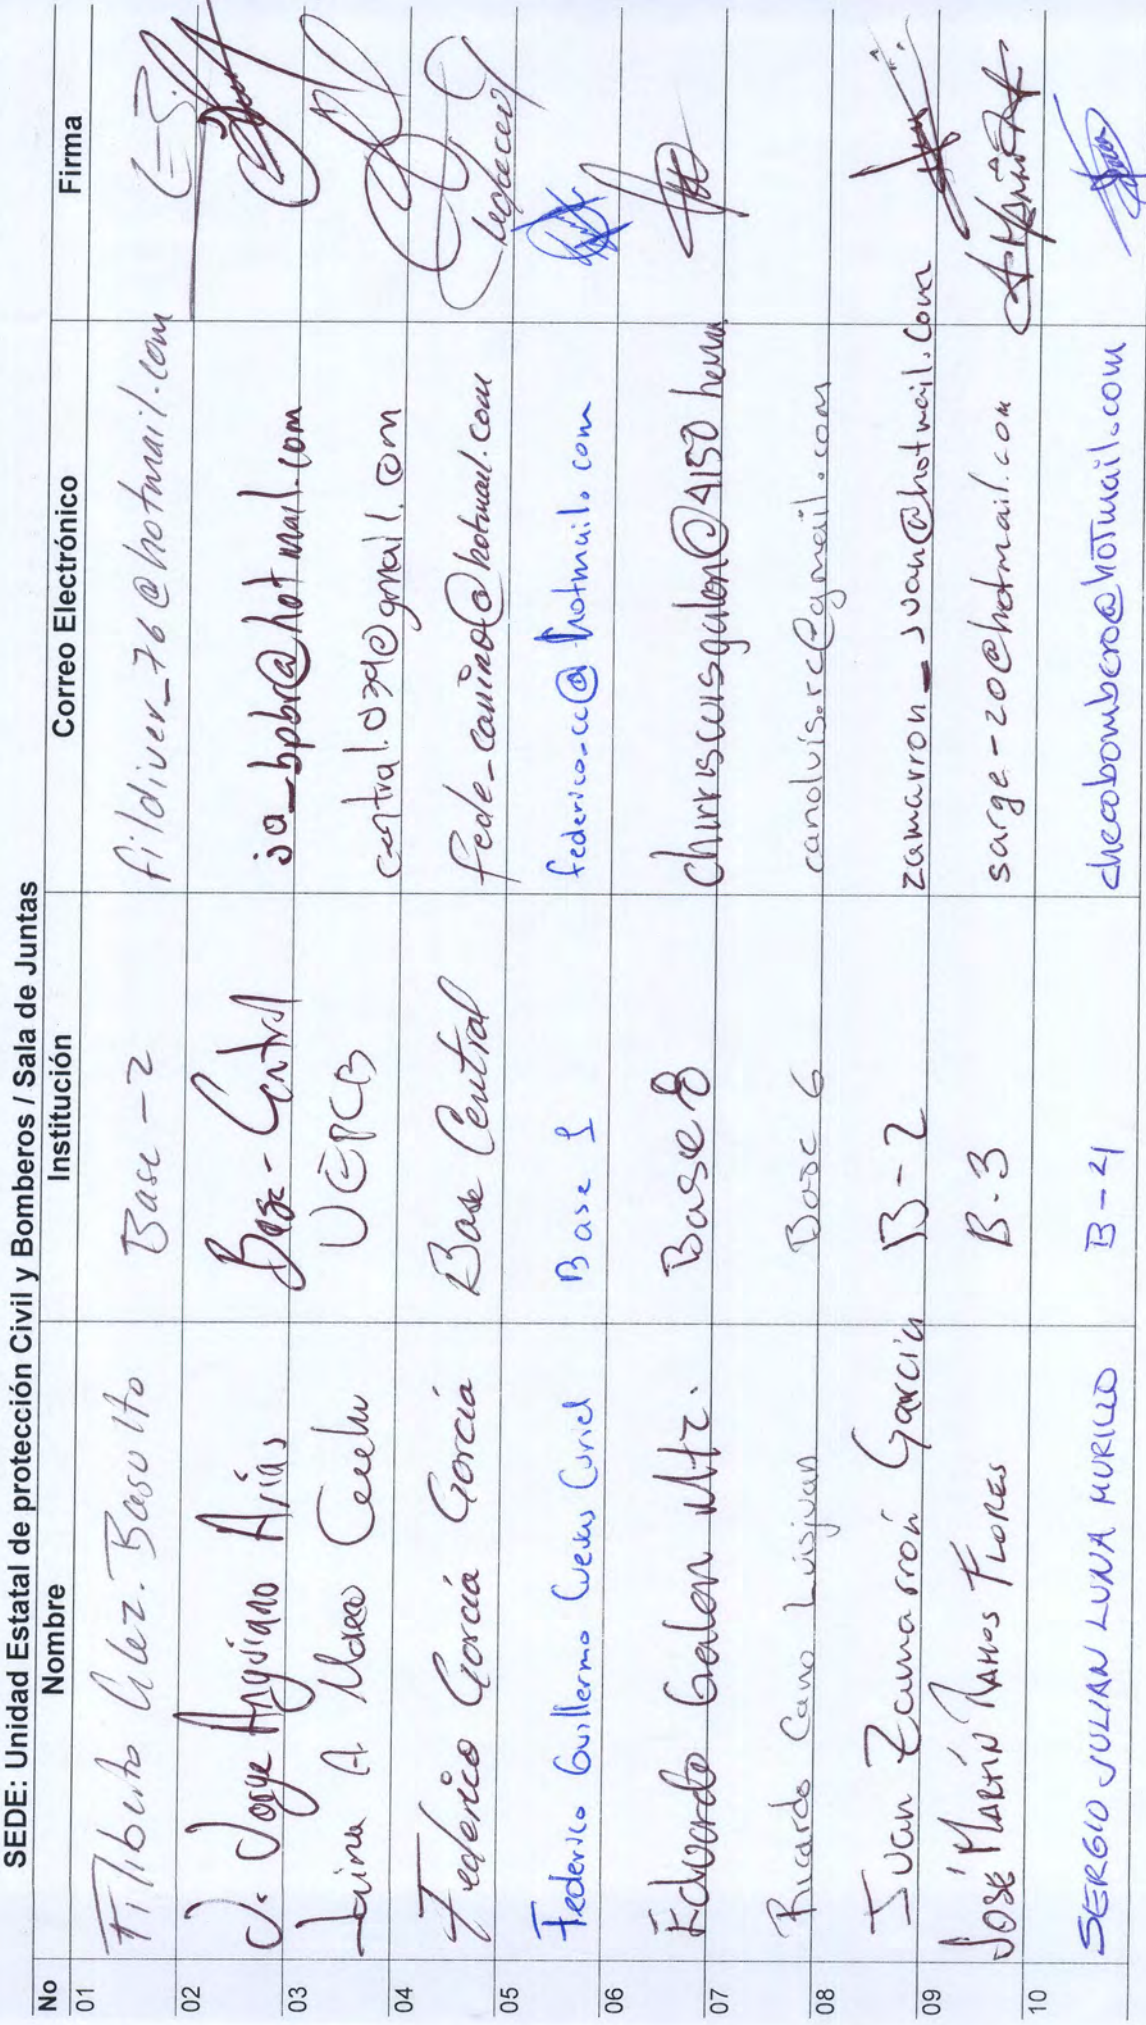 SEDE: Unidad Estatal de protección Civil y Bomberos / Sala de Juntas
No Nombre Institución Correo Electrónico Firma
01 Filiberto Glez. Basulto Base-2 fildiver_76@hotmail.com
02 J. Jorge Anguiano Arias Base-Central ja_bpbr@hotmail.com
03 A UEPCB @gmail.com
04 Federico García García Base Central fede_casino@hotmail.com
05 Federico Guillermo Cuevas Curiel Base 1 federico-cc@hotmail.com
06 Eduardo Galon Mtz. Base 8
07 Ricardo Cano Luisjuan Base 6 canoluis.rc@gmail.com
08 Juan Zamarrón García B-2 zamarron_juan@hotmail.com
09 José Martín Ramos Flores B-3 sarge-20@hotmail.com
10 SERGIO JULIAN LUNA MURILLO B-4 checobombero@hotmail.com